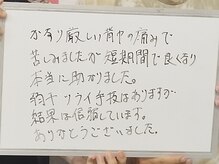 かなり厳しい背中の痛みで
苦しみましたが短期間で良くなり
本当に助かりました。
若干ツライ手技はありますが
結果は信服しています。
ありがとうございました。